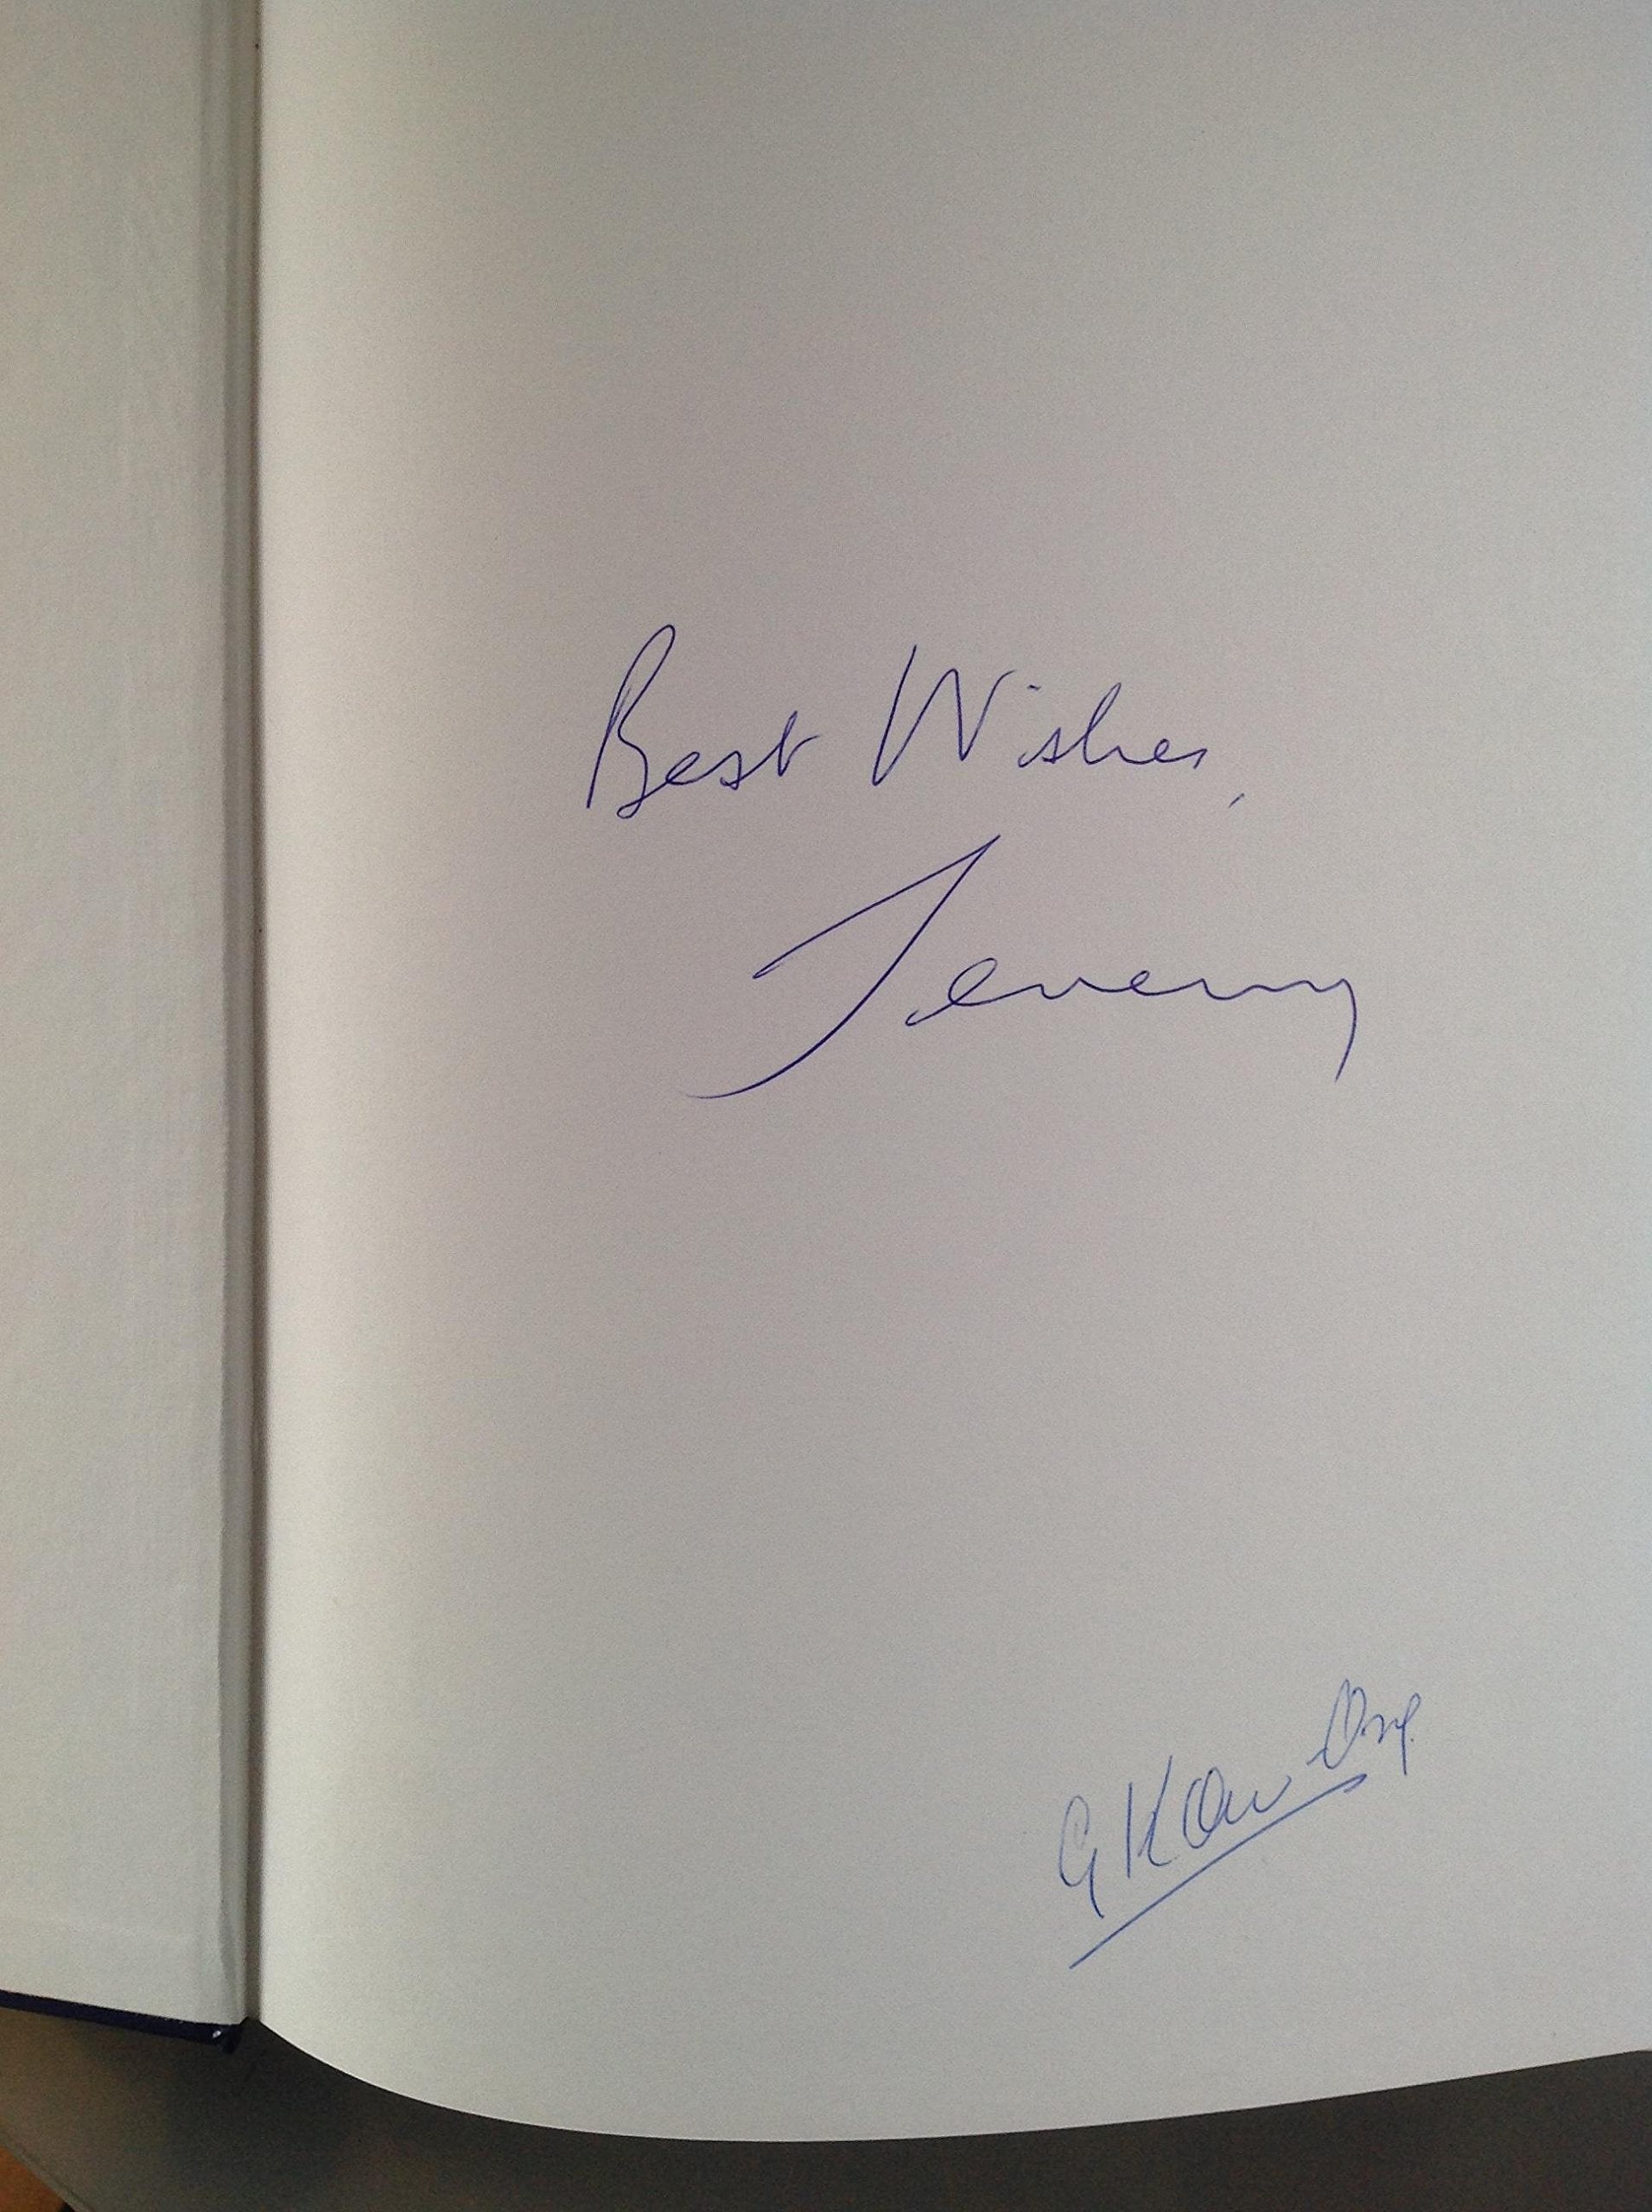 Best Wishes,
Jeremy